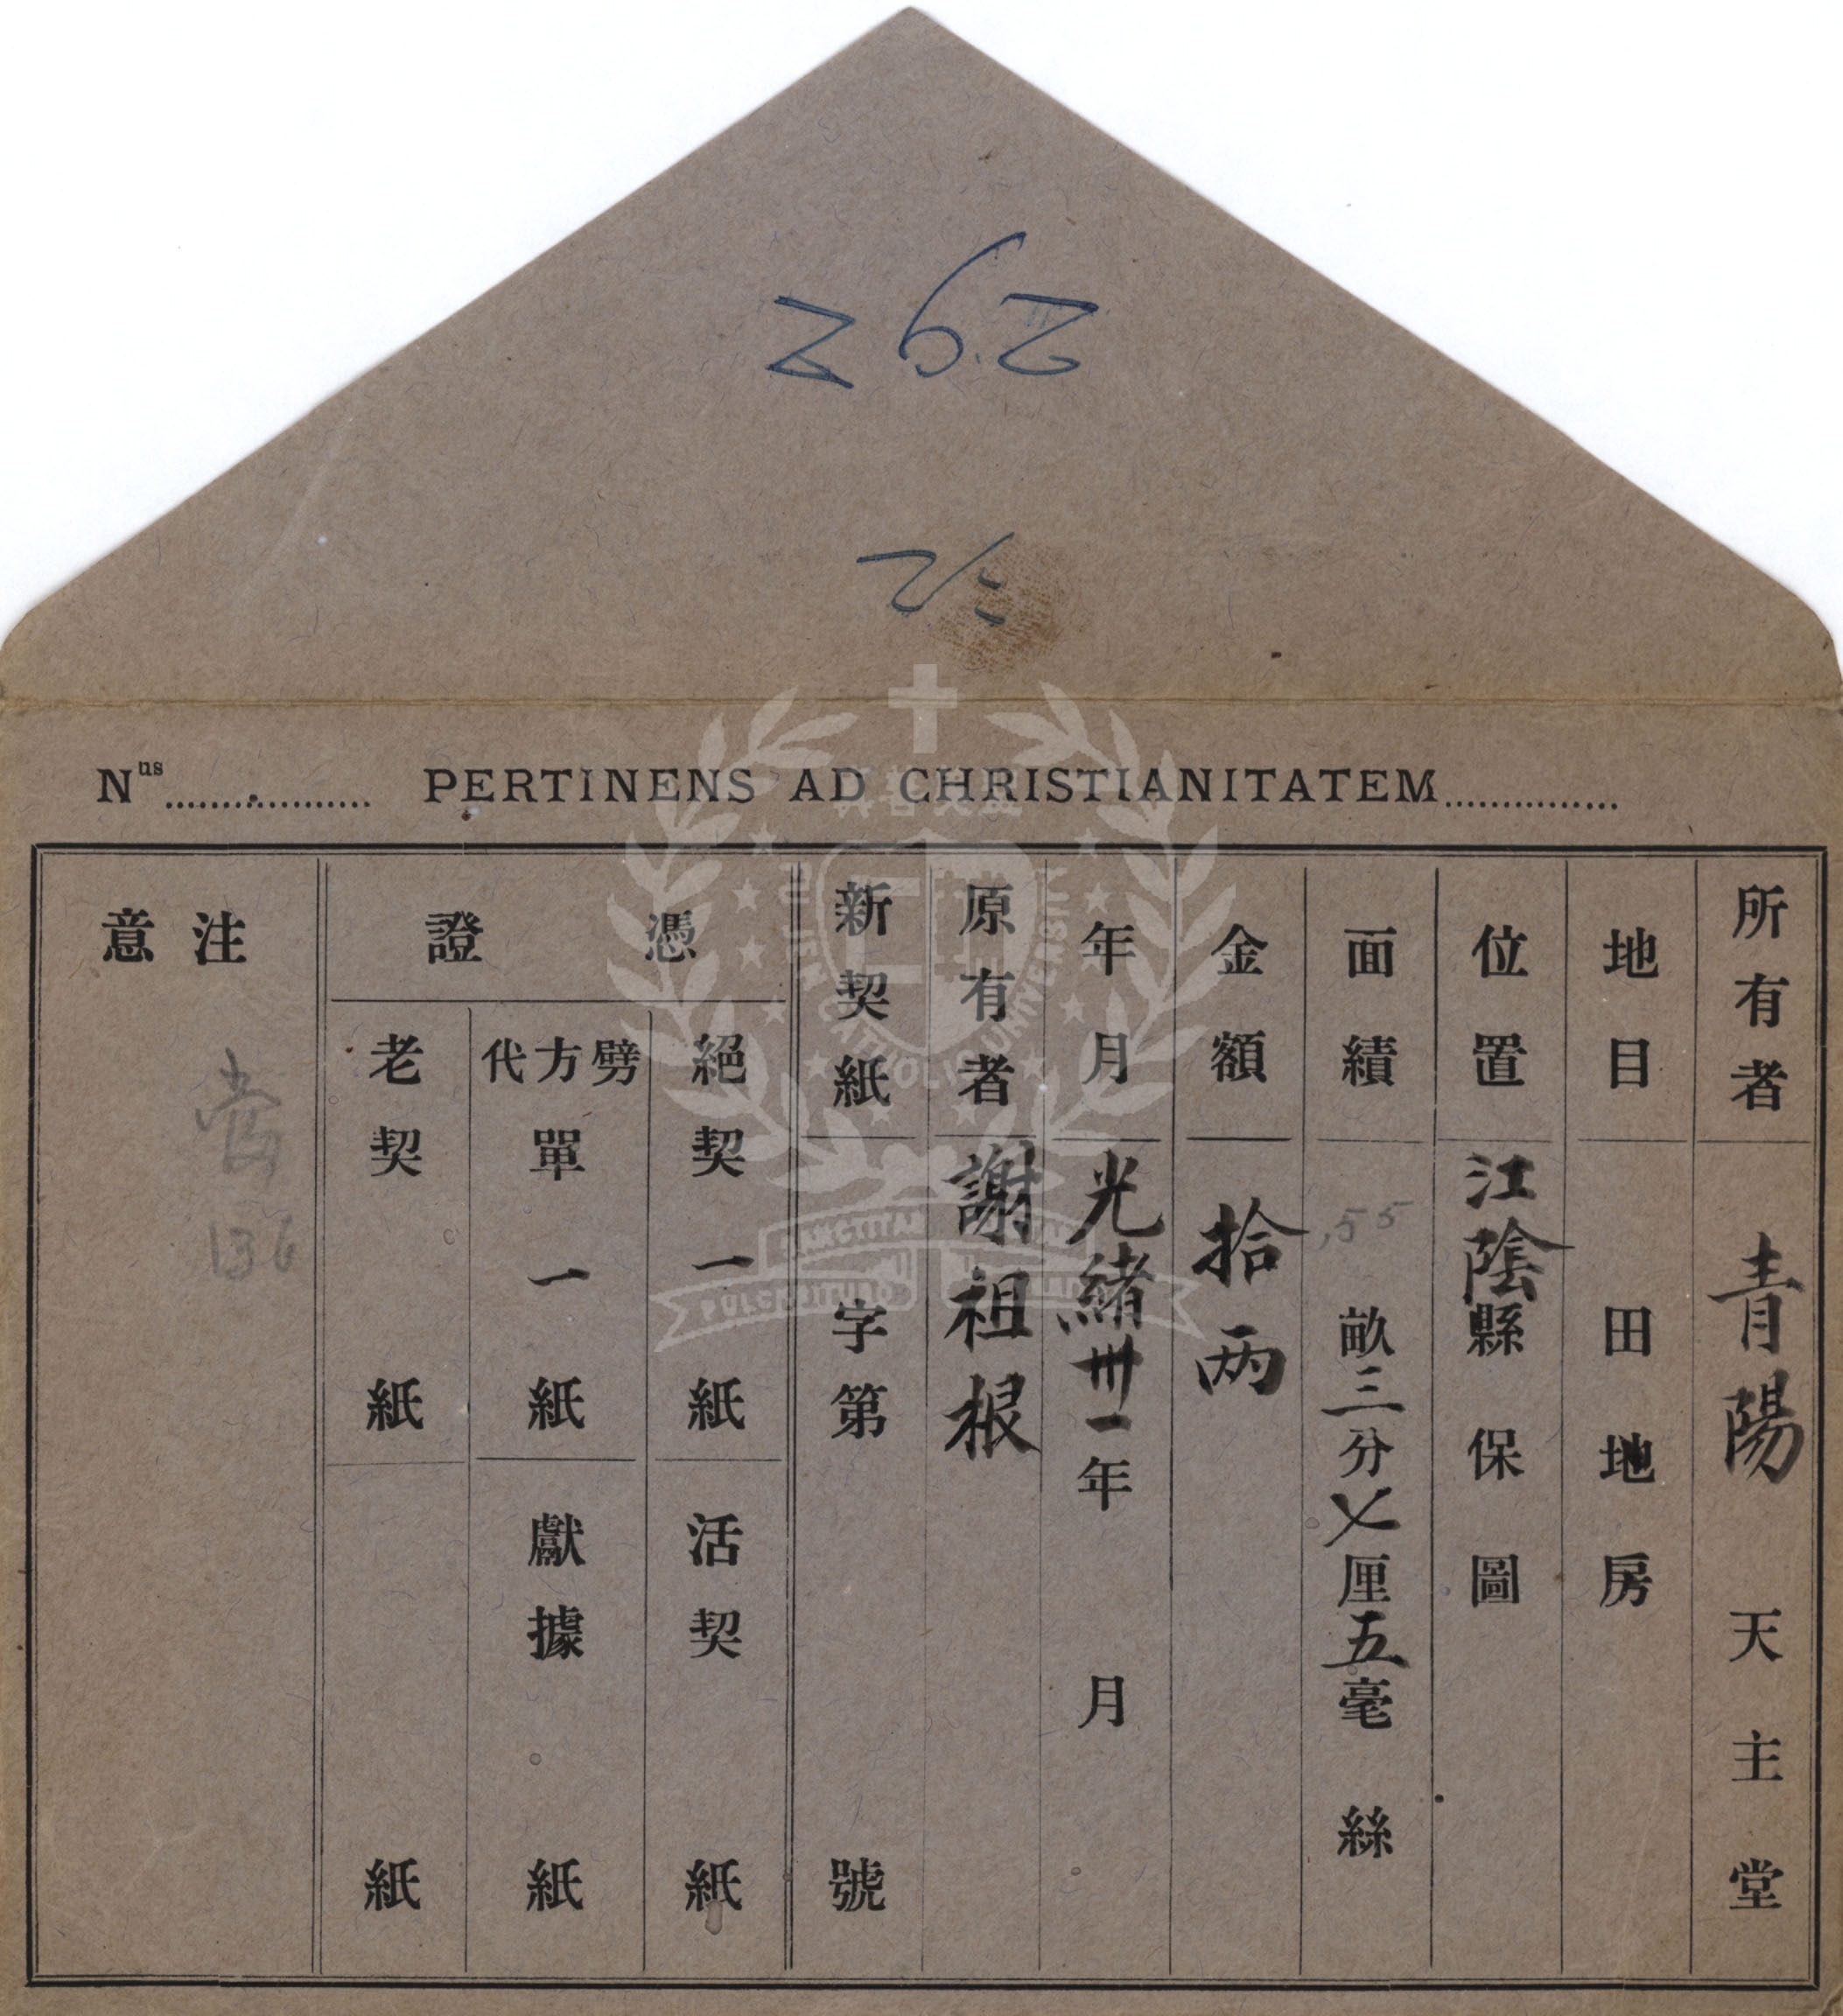 262
N^us .................. PERTINENS AD CHRISTIANITATEM...............
所有者 青陽 天主堂
地目 田地房
位置 江陰縣保圖
面績 .55 畝三分七厘五毫 絲
金額 拾兩
年月 光緒卅一年 月
原有者 謝祖根
新契紙 字第 號
憑證
絕契 一紙 活契 紙
劈方代單 一紙 獻據 紙
老契 紙 紙
注意
136